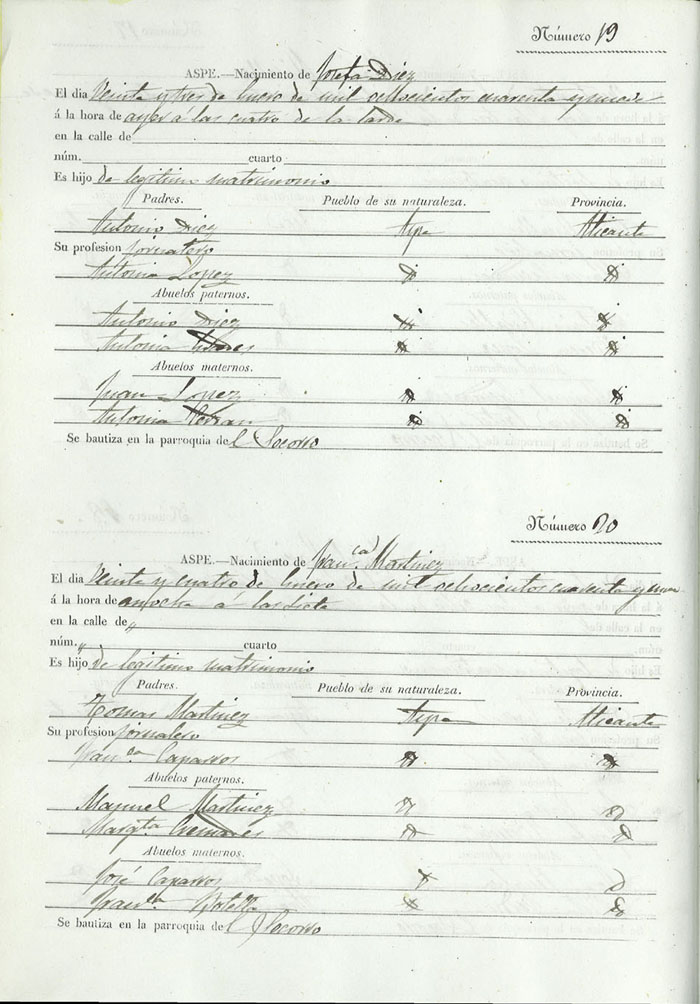 Número 19
ASPE.—Nacimiento de Josefa Diez
El dia Veinte y tres de Enero de mil ochocientos cuarenta y nueve
á la hora de ayer á las cuatro de la tarde
en la calle de
núm. cuarto
Es hijo de legitimo matrimonio
Padres. Pueblo de su naturaleza. Provincia.
Antonio Diez Aspe Alicante
Su profesion Jornalero
Antonia Lopez
Abuelos paternos.
Antonio Diez
Antonia
Abuelos maternos.
Juan Lopez
Antonia
Se bautiza en la parroquia del Socorro
Número 20
ASPE.—Nacimiento de Fran.(ca) Martinez
El dia Veinte y cuatro de Enero de mil ochocientos cuarenta y nueve
á la hora de anoche á las siete
en la calle de „
núm. „ cuarto
Es hijo de legitimo matrimonio
Padres. Pueblo de su naturaleza. Provincia.
Tomas Martinez Aspe Alicante
Su profesion Jornalero
Fran.ca Caparros
Abuelos paternos.
Manuel Martinez
Margta Cremades
Abuelos maternos.
José Caparros
Franca Botella
Se bautiza en la parroquia del Socorro